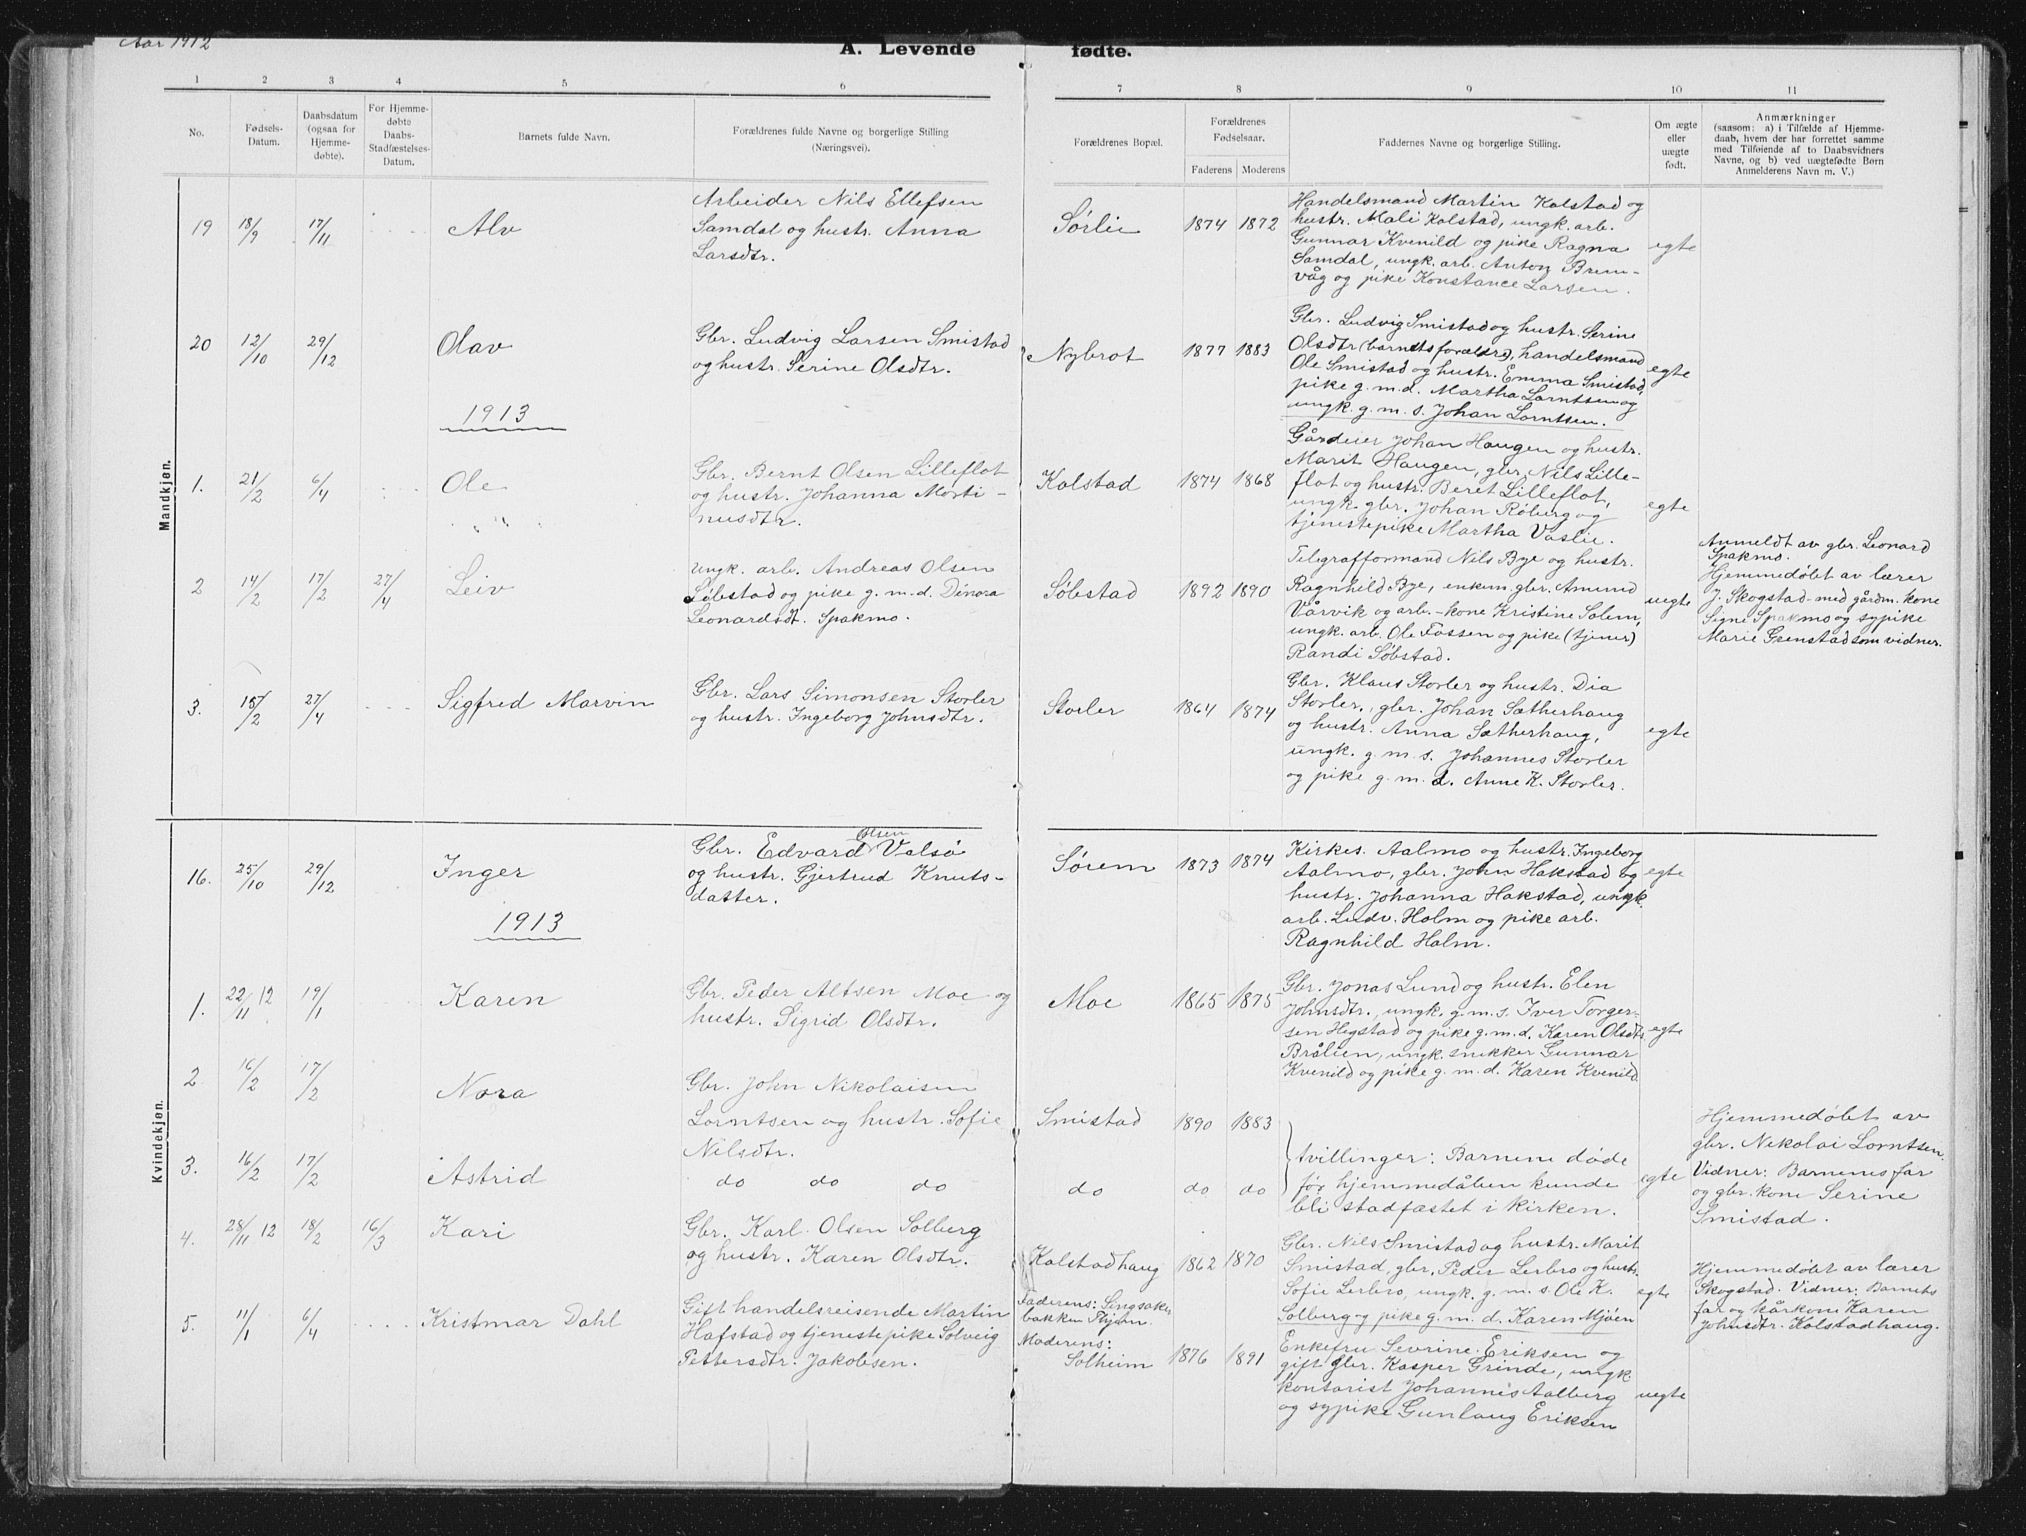 Aar 1912
A. Levende fødte.
1 2 3 4 5 6 7 8 9 10 11
No.
Fødsels-
Datum.
Daabsdatum
(ogsaa for
Hjemme-
døbte).
For Hjemme-
døbte
Daabs-
Stadfæstelses-
Datum.
Barnets fulde Navn.
Forældrenes fulde Navne og borgerlige Stilling
(Næringsvei).
Forældrenes Bopæl.
Forældrenes
Fødselsaar.
Faderens Moderens
Faddernes Navne og borgerlige Stilling.
Om ægte
eller
uægte
født.
Anmærkninger
(saasom: a) i Tilfælde af Hjemme-
daab, hvem der har forrettet samme
med Tilføiende af to Daabsvidners
Navne, og b) ved uægtefødte Børn
Anmelderens Navn m. V.)
Mandkjøn.
19 18/9 17/11 Alv
Arbeider Nils Ellefsen
Samdal og hustr. Anna
Larsdtr.
Sørlii 1874 1872
Handelsmand Martin Kolstad og
hustr. Mali Kolstad, ungk. arb.
Gunnar Kvenild og pike Ragna
Samdal, ungk. arb. Anton Brem-
våg og pike Konstance Larsen.
egte
20 12/10 29/12 Olav
Gbr. Ludvig Larsen Smistad
og hustr. Serine Olsdtr.
Nybrot 1877 1883
Gbr. Ludvig Smistad og hustr. Serine
Olsdtr (barnets forældre), handelsmand
Ole Smistad og hustr. Emma Smistad,
pike g. m. d. Martha Lorntsen og
ungk. g. m. s. Johan Lorntsen.
egte
1913
1. 21/2 6/4 Ole
Gbr. Bernt Olsen Lilleflot
og hustr. Johanna Morti-
nusdtr.
Kolstad 1874 1868
Gårdeier Johan Haugen og hustr.
Marit Haugen, gbr. Nils Lille-
flot og hustr. Beret Lilleflot,
ungk. gbr. Johan Røberg og
tjenestepike Martha Vaslie.
egte
2 14/2 17/2 27/4 Leiv
Ungk. arb. Andreas Olsen
Søbstad og pike g. m. d. Dinora
Leonardsdt. Spakmo.
Søbstad 1892 1890
Telegrafformand Nils Bye og hustr.
Ragnhild Bye, enkem. gbr. Amund
Vårvik og arb.-kone Kristine Solem,
ungk. arb. Ole Fossen og pike (tjener)
Randi Søbstad.
uegte
Anmeldt av gbr. Leonard
Spakmo.
Hjemmedøbt av lærer
J. Skogstad med gårdm. kone
Signe Spakmo og sypike
Marie Grenstad som vidner.
3. 15/2 27/4 Sigfred Marvin
Gbr. Lars Simonsen Storler
og hustr. Ingeborg Johnsdtr.
Storler 1864 1874
Gbr. Klaus Storler og hustr. Dia
Storler, gbr. Johan Sætherhaug
og hustr. Anna Sætherhaug,
ungk. g. m. s. Johannes Storler
og pike g. m. d. Anne K. Storler.
egte
Kvindekjøn.
16. 25/10 29/12 Inger
Olsen
Gbr. Edvard Valsø
og hustr. Gjertrud Knuts-
datter.
Sørem 1873 1874
Kirkes. Aalmo og hustr. Ingeborg
Aalmo, gbr. John Hakstad og
hustr. Johanna Hakstad, ungk.
arb. Ludv. Holm og pike arb.
Ragnhild Holm.
egte
1913
1. 22/11 12 19/1 Karen
Gbr. Peder Altsen Moe og
hustr. Sigrid Olsdtr.
Moe 1865 1875
Gbr. Jonas Lund og hustr. Elen
Johnsdtr., ungk. g. m. s. Iver Torger-
sen Hegstad og pike g. m. d. Karen Olsdtr
Brålien, ungk. snikker Gunnar
Kvenild og pike g. m. d. Karen Kvenild.
egte
2. 16/2 17/2 Nora
Gbr. John Nikolaisen
Lorntsen og hustr. Sofie
Nilsdtr.
Smistad 1890 1883
3. 16/2 17/2 Astrid
do do do
do do do
tvillinger: Barnene døde
før hjemmedåben kunde
bli stadfæstet i kirken.
egte
Hjemmedøbt av
gbr. Nikolai Lorntsen.
Vidner: Barnenes far
og gbr. kone Serine
Smistad.
4. 28/11 12 18/2 16/3 Kari
Gbr. Karl Olsen Solberg
og hustr. Karen Olsdtr.
Kolstadhaug 1862 1870
Gbr. Nils Smistad og hustr. Marit
Smistad, gbr. Peder Lerbro og hustr.
Sofie Lerbro, ungk. g. m. s. Ole K.
Solberg og pike g. m. d. Karen Mjøen
egte
Hjemmedøbt av lærer
Skogstad. Vidner: Barnets
far og kårkone Karen
Johnsdtr. Kolstadhaug.
5. 11/1 6/4 Kristmar Dahl
Gift handelsreisende Martin
Hafstad og tjenestepike Solveig
Pettersdtr. Jakobsen.
Faderens: Singsaker
bakken Thjem.
Moderens:
Solheim 1876 1891
Enkefru Severine Eriksen og
gift gbr. Kasper Grinde, ungk
kontorist Johannes Aalberg
og sypike Gunlaug Eriksen
uegte